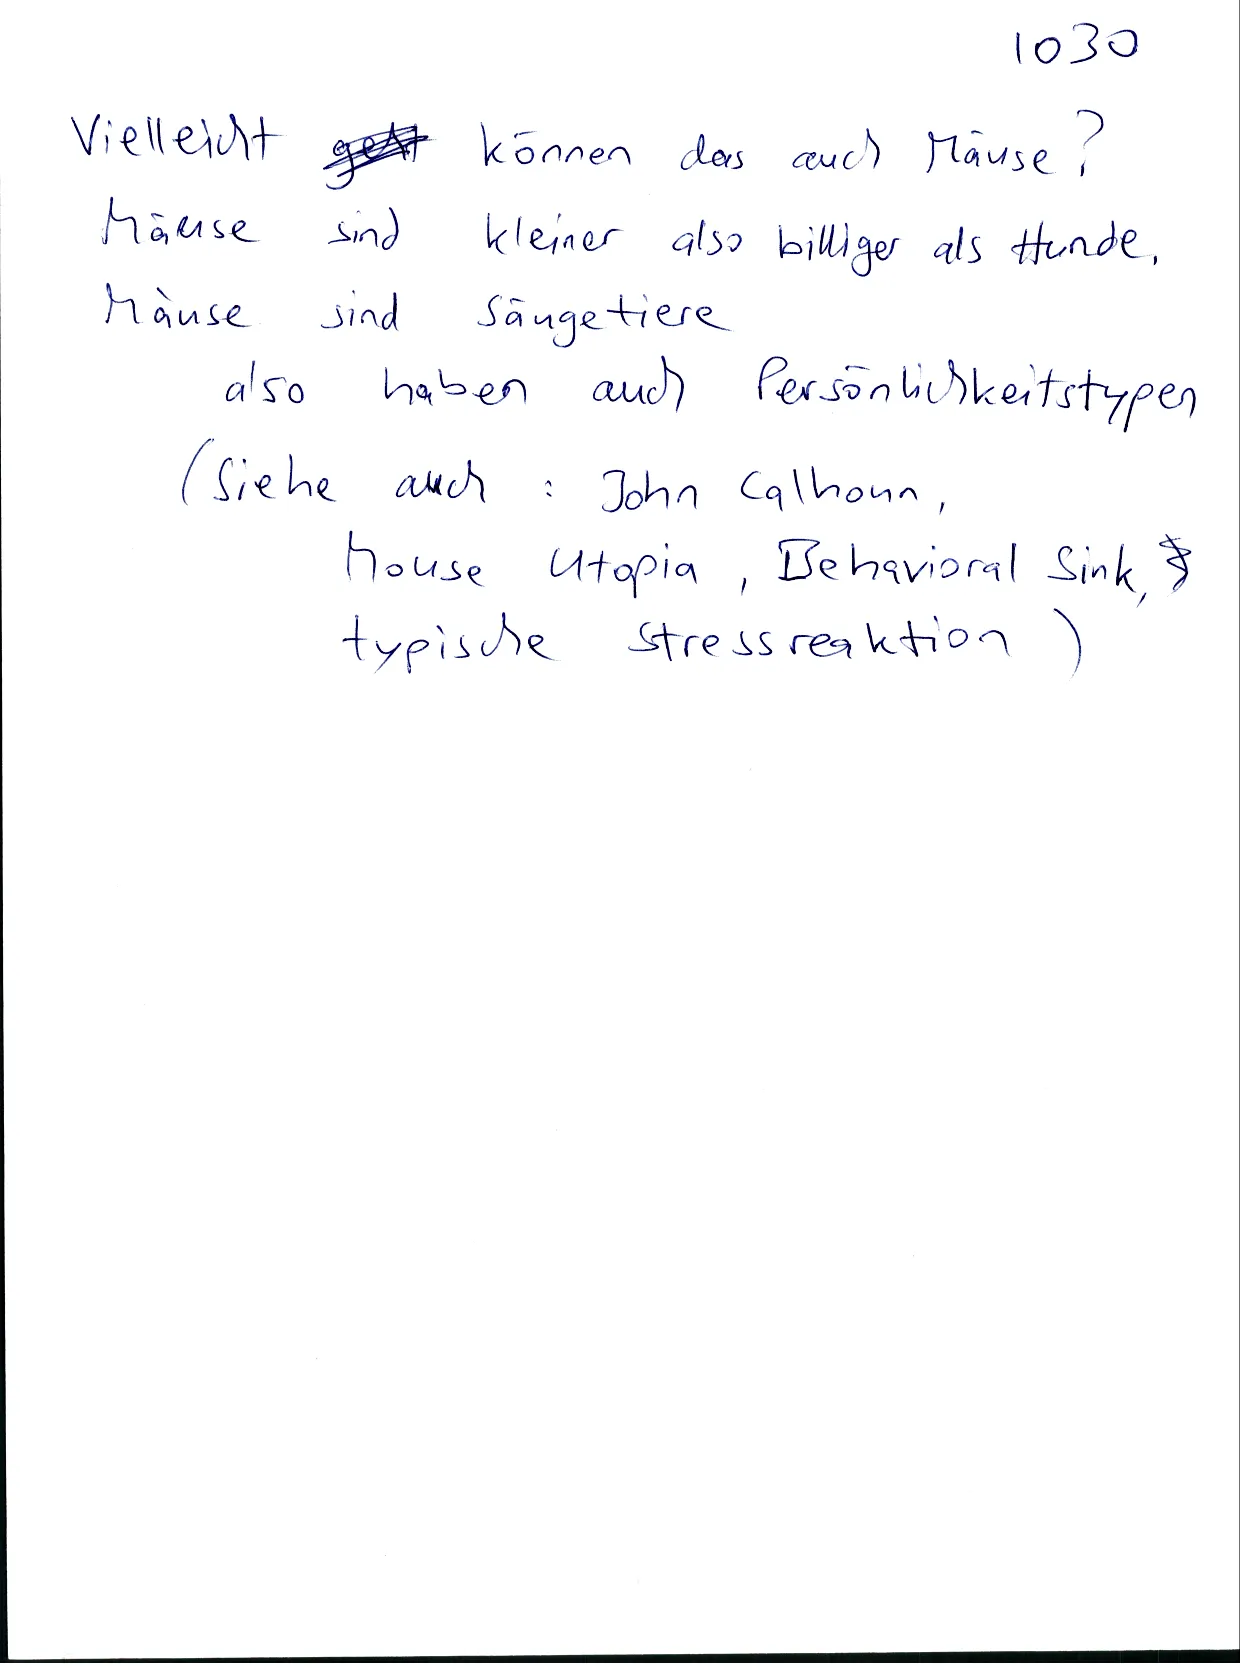 1030
Vielleicht können das auch Mäuse?
Mäuse sind kleiner also billiger als Hunde.
Mäuse sind Säugetiere
also haben auch Persönlichkeitstypen
(Siehe auch : John Calhoun,
Mouse Utopia, Behavioral Sink,
typische Stressreaktion)